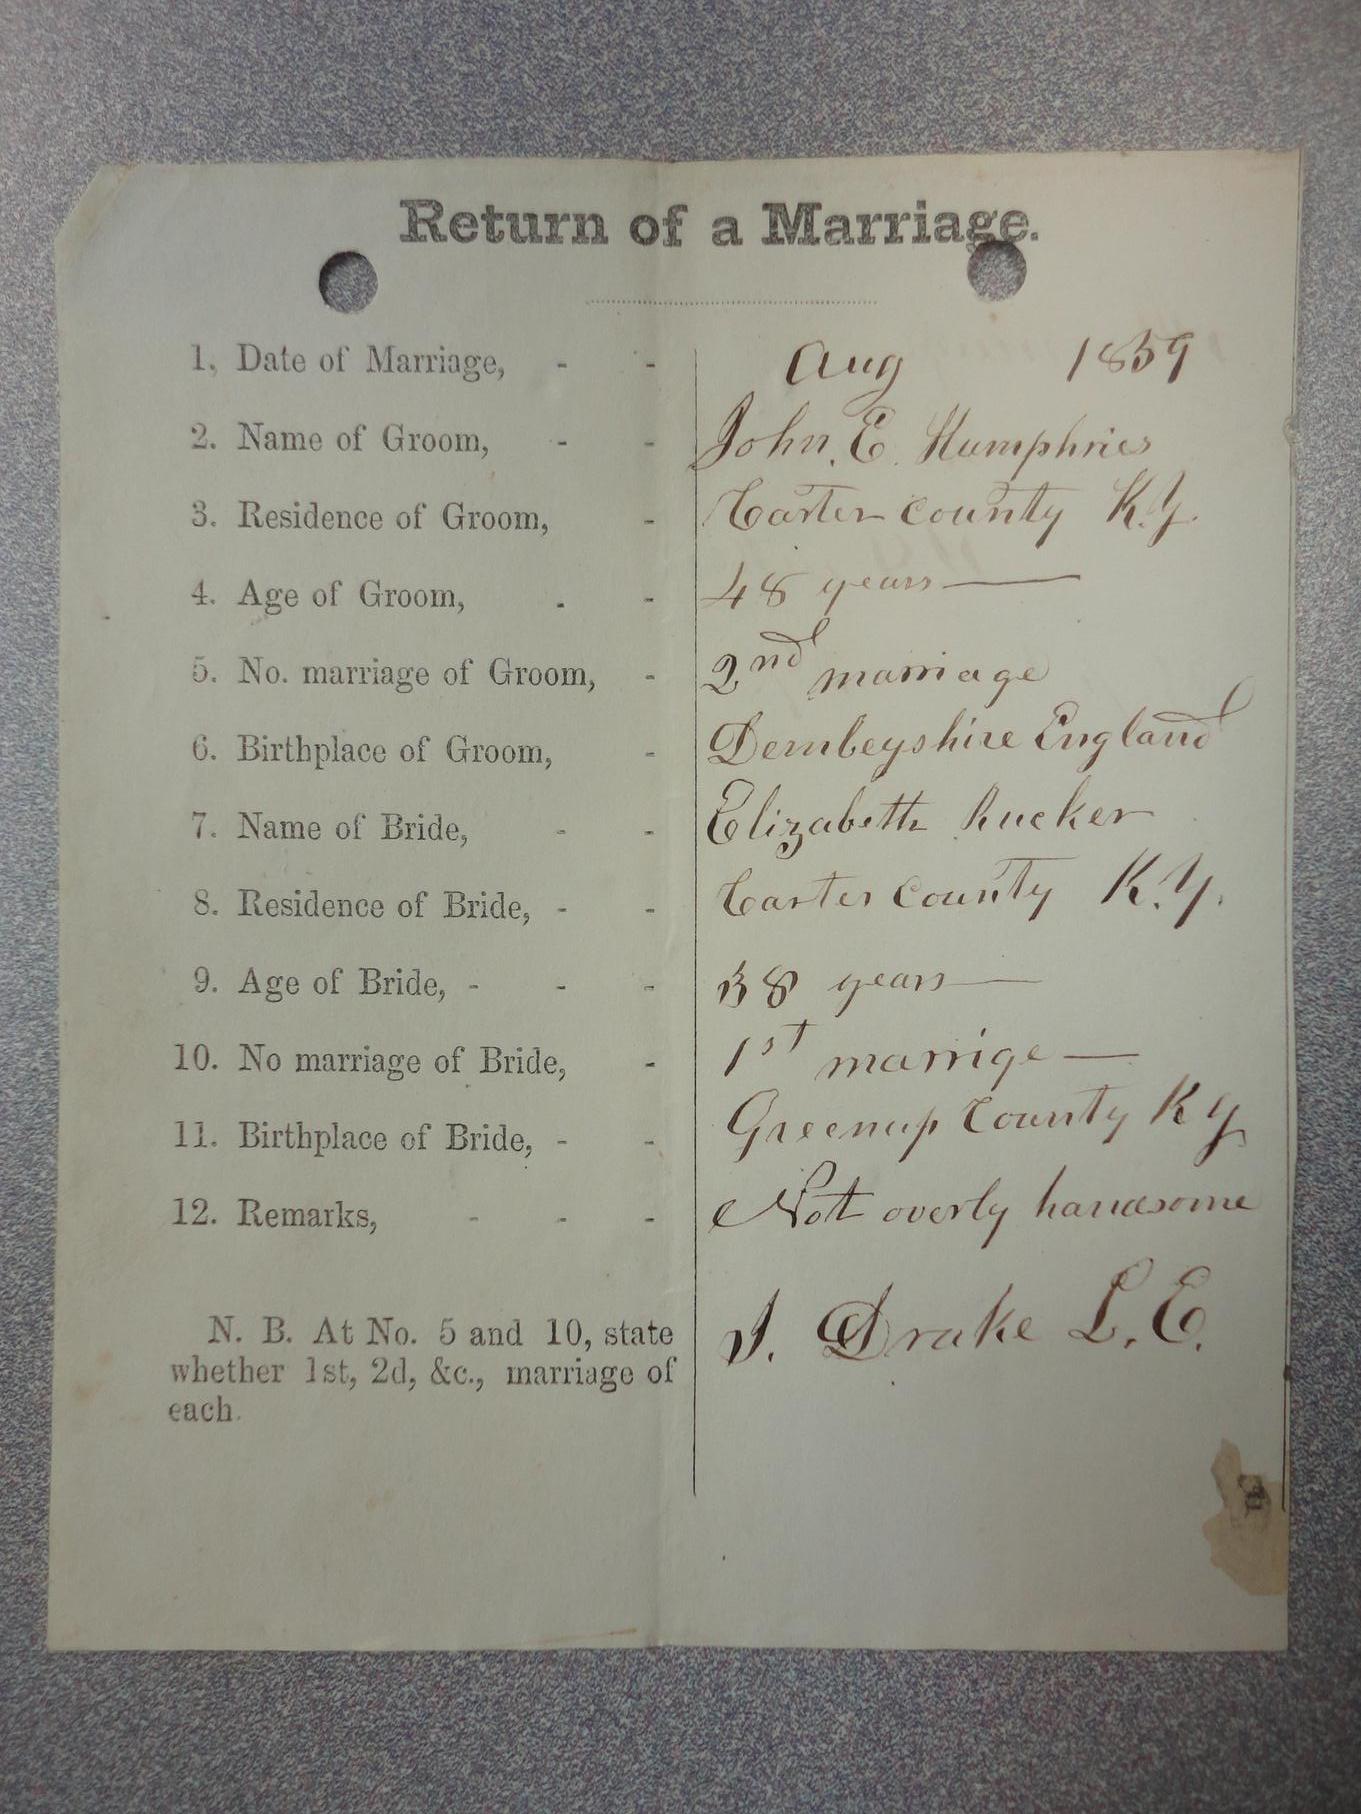 Return of a Marriage.
1, Date of Marriage, - - Aug 1859
2. Name of Groom, - - John. E. Humphries
3. Residence of Groom, - Carter county K.Y.
4. Age of Groom, - - 48 years —
5. No. marriage of Groom, - 2nd marriage
6. Birthplace of Groom, - Dembeyshire England
7. Name of Bride, - - Elizabeth Rucker
8. Residence of Bride, - - Carter County K.Y.
9. Age of Bride, - - - 38 years —
10. No marriage of Bride, - 1st marrige —
11. Birthplace of Bride, - - Greenup County Ky
12. Remarks, - - - Not overly handsome
J. Drake L. E.
N. B. At No. 5 and 10, state
whether 1st, 2d, &c., marriage of
each.